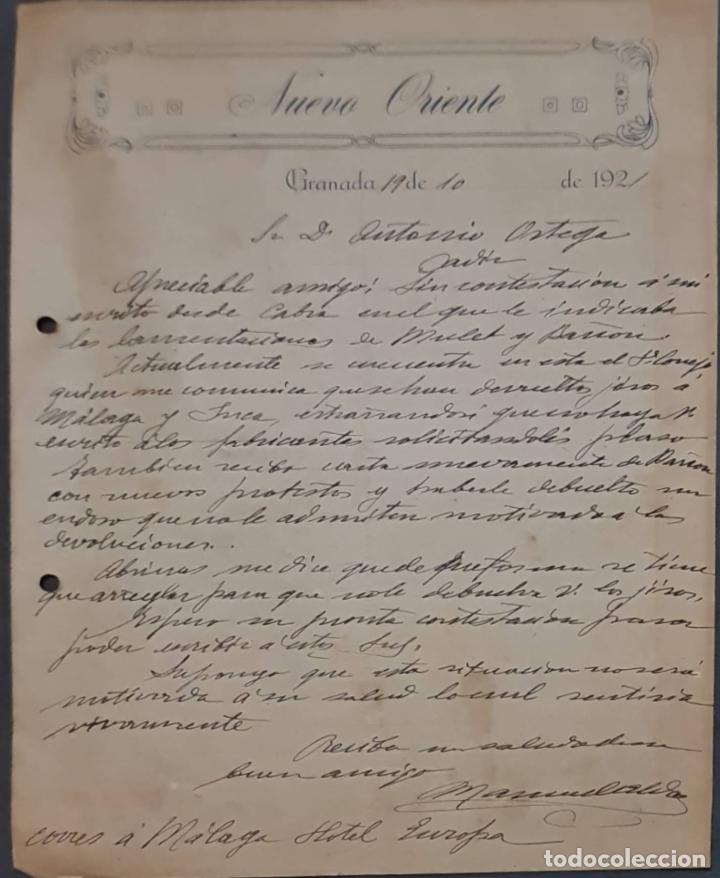 Nuevo Oriente
Granada 19 de 10 de 1921
Sr Dn Antonio Ortega
Apreciable amigo: Sin contestación á mi
escrito desde Cabra en el que le indicaba
las lamentaciones de Mulet y Bañon.
Actualmente se encuentra en esta el Sr Conejo
quien me comunica que se han devuelto jiros á
Málaga y Inca, estrañandose que no haya V.
escrito á los fabricantes solicitandoles plaso
Tambien recibo carta nuevamente de Bañon
con nuevos protestos y haberle debuelto un
endoso que no le admiten motivado á las
devoluciones.
me dice que de forma se tiene
que arreglar para que no le debuelva V. los jiros,
Espero su pronta contestación para
poder escribir á estos Sres.
Supongo que esta situacion no será
motivada á su salud lo cual sentiria
vivamente
Reciba un saludo de su
buen amigo
Manuel
corres á Málaga Hotel Europa
todocoleccion